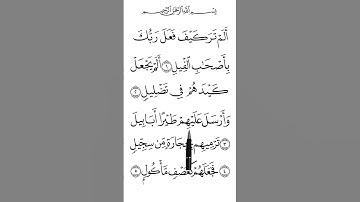 بِسْمِ اللَّهِ الرَّحْمَٰنِ الرَّحِيمِ
أَلَمْ تَرَ كَيْفَ فَعَلَ رَبُّكَ
بِأَصْحَابِ الْفِيلِ ١ أَلَمْ يَجْعَلْ
كَيْدَهُمْ فِي تَضْلِيلٍ ٢
وَأَرْسَلَ عَلَيْهِمْ طَيْرًا أَبَابِيلَ
٣ تَرْمِيهِمْ بِحِجَارَةٍ مِنْ سِجِّيلٍ
٤ فَجَعَلَهُمْ كَعَصْفٍ مَأْكُولٍ ٥